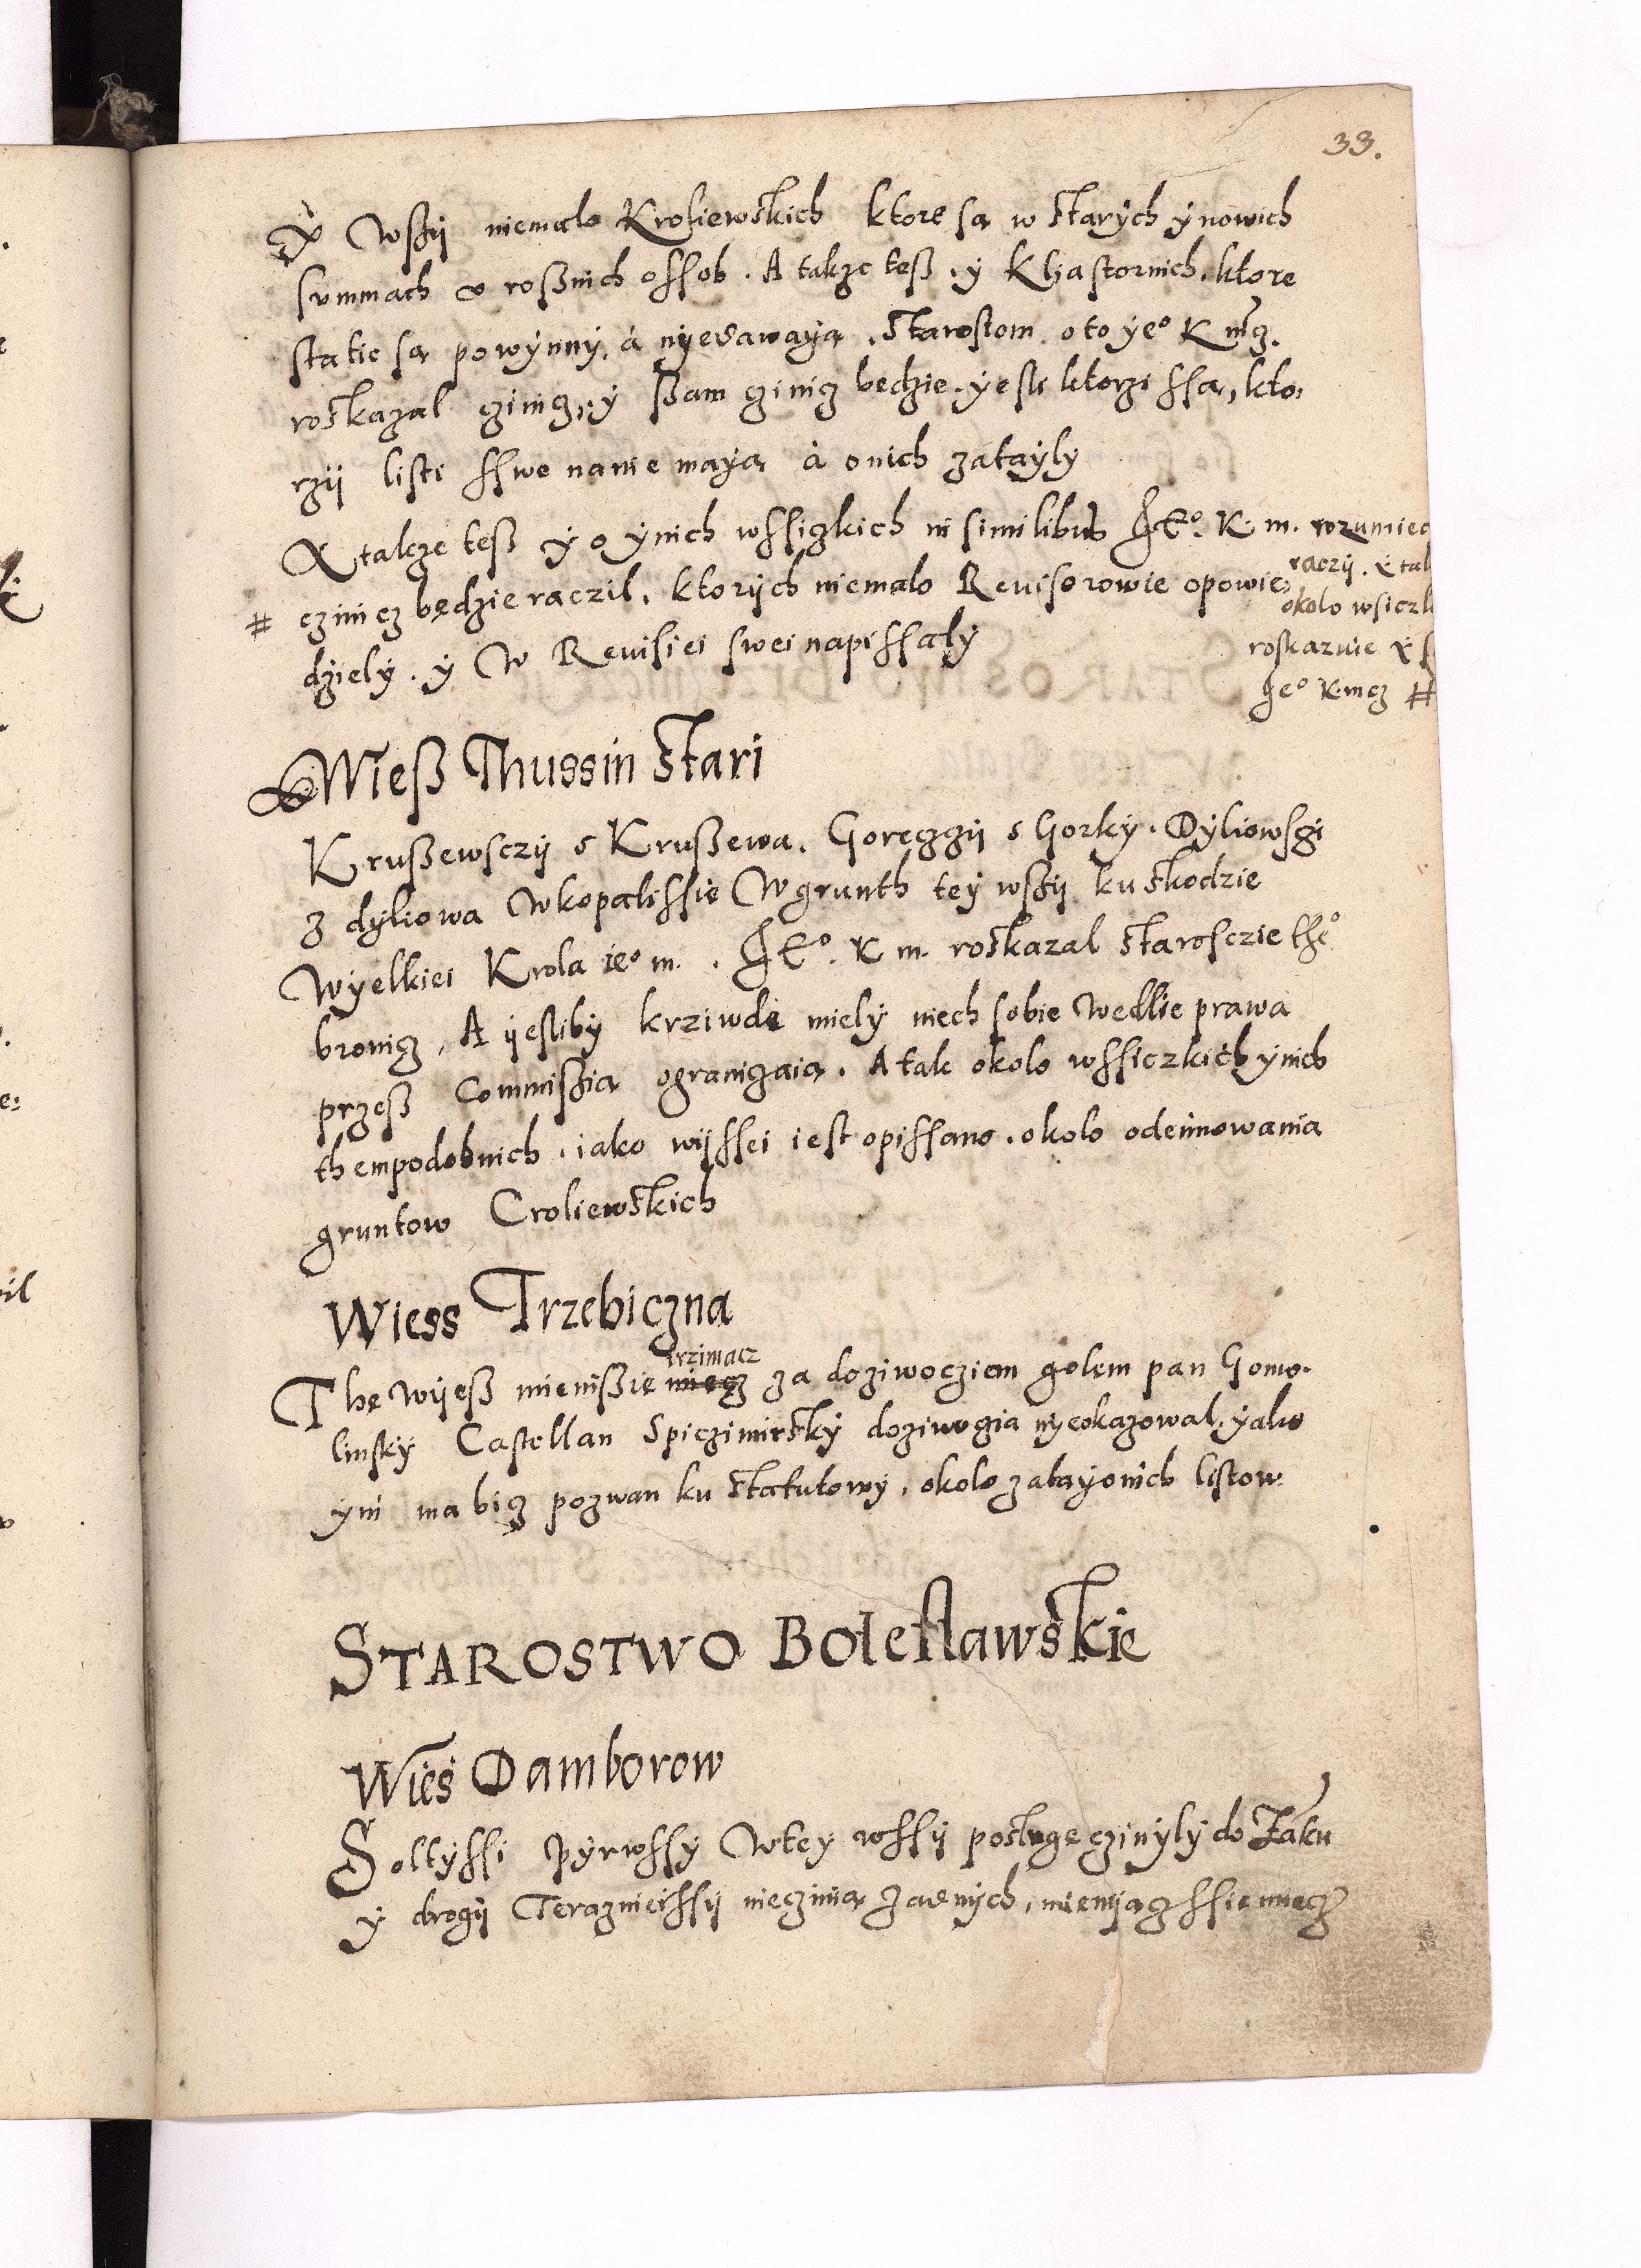 33.
Y Wszij niemalo Kroliewskich ktore są w starych y nowich
summach v rosznich ossob. A takze tesz. y Kljastornich. ktore
statie są powynny, á nyedawaya. Starostom. o to ye° K mcz.
roskazal czinicz, y szam czinicz bedzie. yesli ktorzi ssą, kto-
rzij listi sswe nanie mayą á o nich zatayly
Y takze tesz y o ynich wssiczkich in similibus JE°. K. m. rozumiec
raczij. Y tak
# czinicz będzie raczil, ktorych niemalo Revisorowie opowie-
okolo wsiczk
dziely. y W Revisiei swei napissaly
roskazuie Y s
Je° K. mcz #
Wiesz Thussin Stari
Kruszewsczij s Kruszewa. Goreczgij s Gorky. Dyliowsgi
z dyliowa Wkopalissie W grunth tey wszij ku skodzie
Wyelkiei Krola ie° m. JE°. K m. roskazal Starosczie the°
bronicz, A ijesliby krziwdę miely niech sobie Wedlie prawa
przesz Commiszią ograniczaią. A tak okolo wssiczkich ynich
thempodobnich. iako wijssei iest opissano. okolo odeimowania
gruntow Croliewskich
Wiess Trzebiczna
trzimacz
The Wijesz mieniszie miecz za doziwocziem golem pan Gomo-
linsky Castellan Spiczimirsky doziwogia nyeokazowal, yako
yni ma bicz pozwan ku statutowy, okolo zatayonich listow.
STAROSTWO Boleslawskie
Wies Damborow
Soltyssi Pyrwssy W tey wssij poslugę czinyly do Zaku
y drogij Terazniejssij nieczinią zadnych, mieniącz ssie miecz